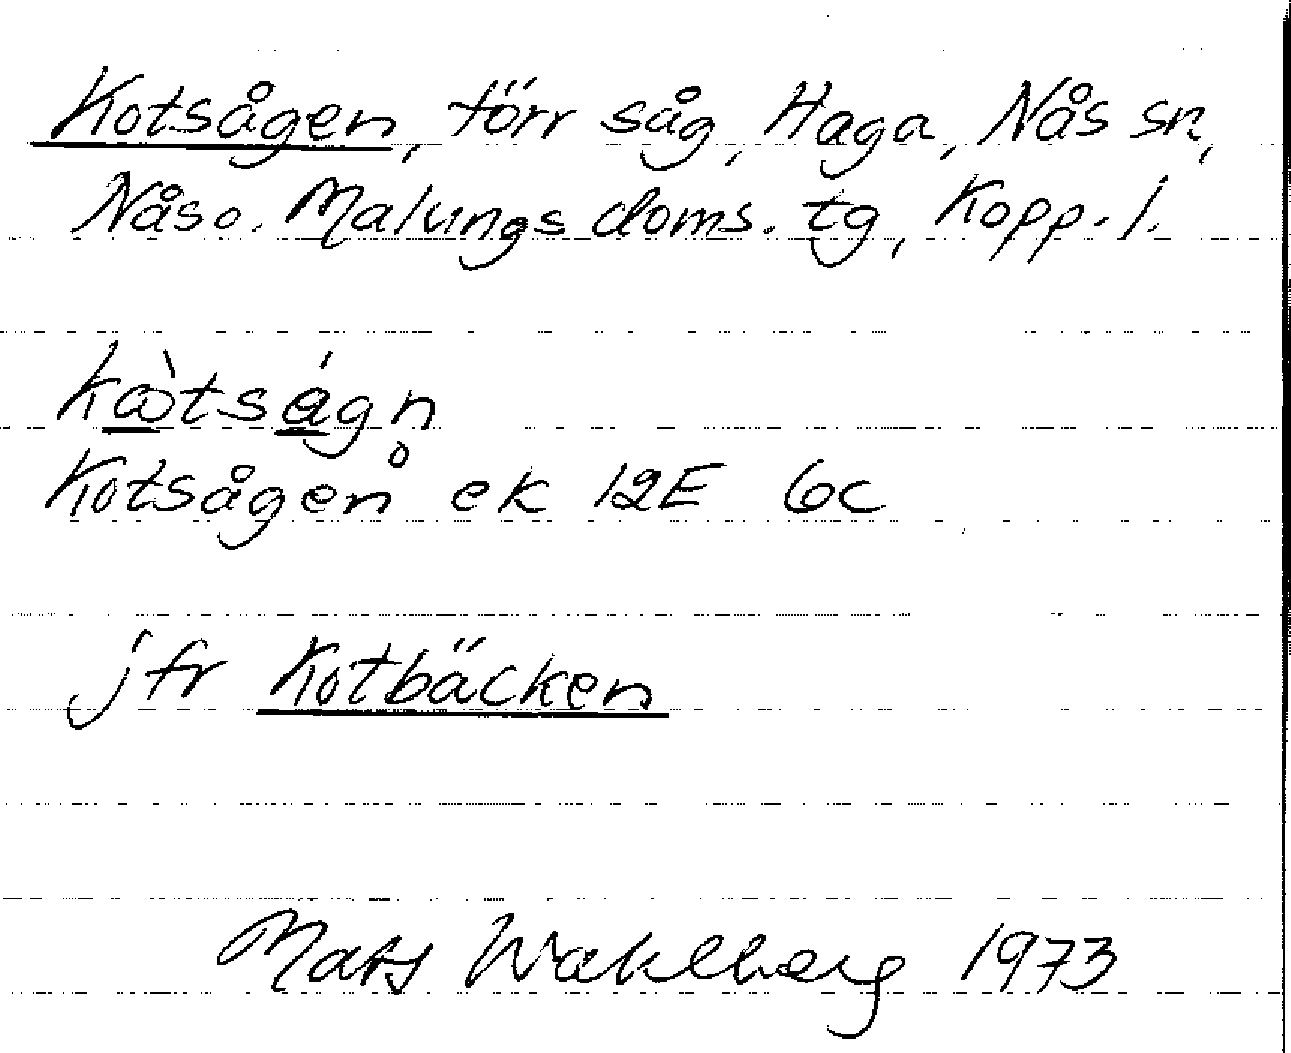 Kotsågen, förr såg, Haga, Nås sn,
Nås o. Malungs doms. tg, Kopp. l.
kɷ̀tságn̥
Kotsågen ek 12E 6c
jfr Kotbäcken
Mats Wahlberg 1973